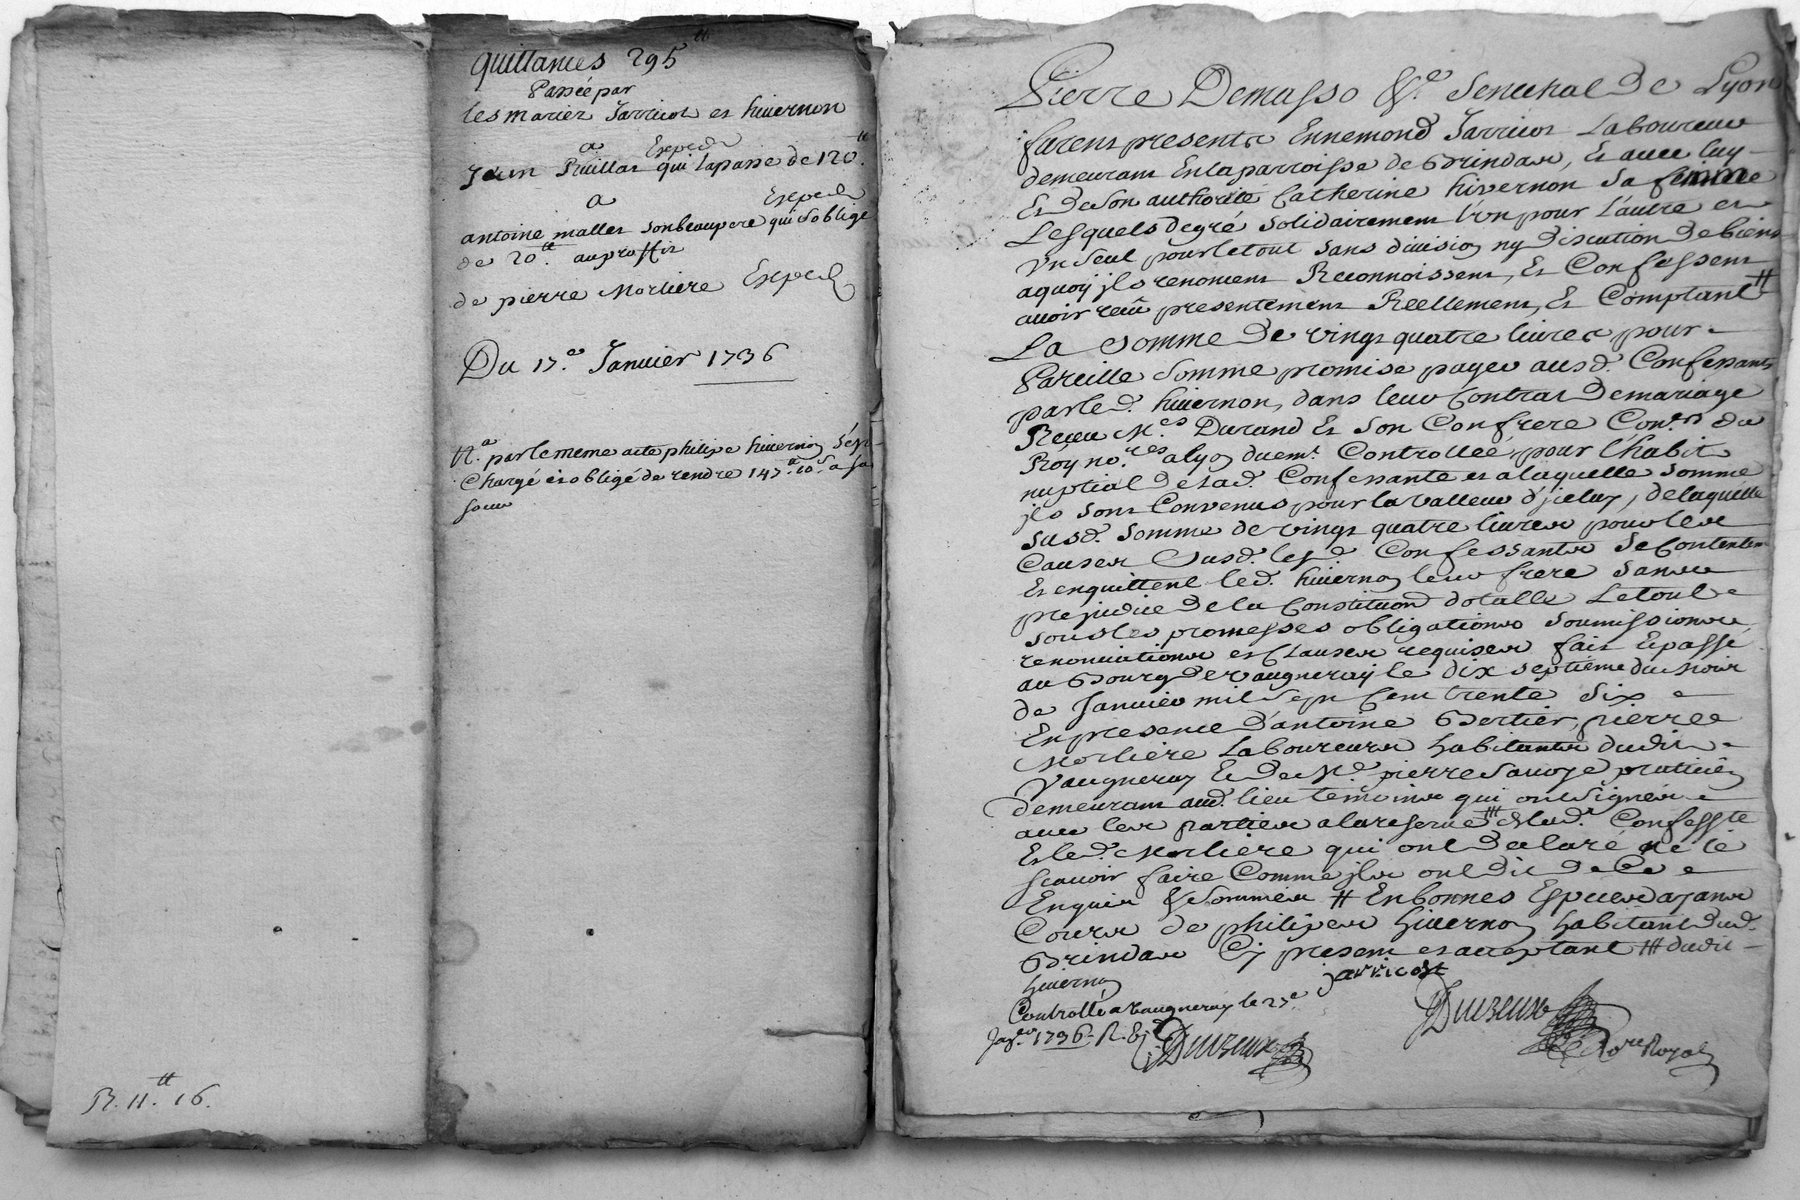 quittances 295 ₶
Passée par
les mariez Jarricot et hiuernon
a Exped
Jean Riuillat qui lapasse de 120 ₶.
a Exped
antoine mallet son beaupere qui soblige
de 20 ₶. au proffit
de pierre Morliere Exped
Du 17.e Januier 1736
N.a par le meme acte philipe hiuernon sest
Chargé et obligé de rendre 147 ₶ 10 s a sa
soeur
R. 11 ₶. 16.
Pierre Demasso &.a Senechal de Lyon
farens presents Ennemond Jarricot Laboureur
demeurant En la parroisse de Brindas, Et auec luy
Et de son authorité Catherine hivernon sa femme
Lesquels de gré solidairement l'un pour l'autre et
Un seul pour le tout sans diuision ny discution de biens
a quoy jls renoncent Reconnoissent, Et Confessent
auoir receu presentement Reellement, Et Comptant #
La somme de vingt quatre liures pour
Pareille somme promise payer ausd. Confessants
par led. hiuernon, dans leur Contrat de mariage
Receu M.es Durand Et son Confrere Con.ers du
Roy no.res a lyon duem.t Controllé, pour l'habit
nuptial de lad. Confessante et a laquelle somme
jls sont Convenus pour la valleur d'jceluy, de laquelle
susd. somme de vingt quatre liures pour les
Causes susd. lesd. Confessants se Contentent
Et en quittent led. hiuernon leur frere sans
prejudice de la Constitution dotalle Le tout
sous les promesses obligations soumissions
renonciations et Clauses requises fait Et passé
au Bourg de vaugneray le dix septieme du mois
de Januier mil sept Cent trente six
En presence d'antoine Bertier, pierre
Morliere Laboureurs habitants dudit
Vaugneray Et de M.e pierre Sauoye praticien
demeurant aud. lieu temoins qui ont signés
auec les parties a la reserue ### de lad. Confess.te
Et led. Morliere qui ont declaré ne le
scauoir faire Comme jls ont dit de Ce
Enquis & sommés # En bonnes Especes ayant
Cours de philipes hiuernon habitant dud.
Brindas Cy present et acceptant ### dudit
hiuernon
jarricot
Controllé a vaugneray le 27.e
Jan.er 1736. R.